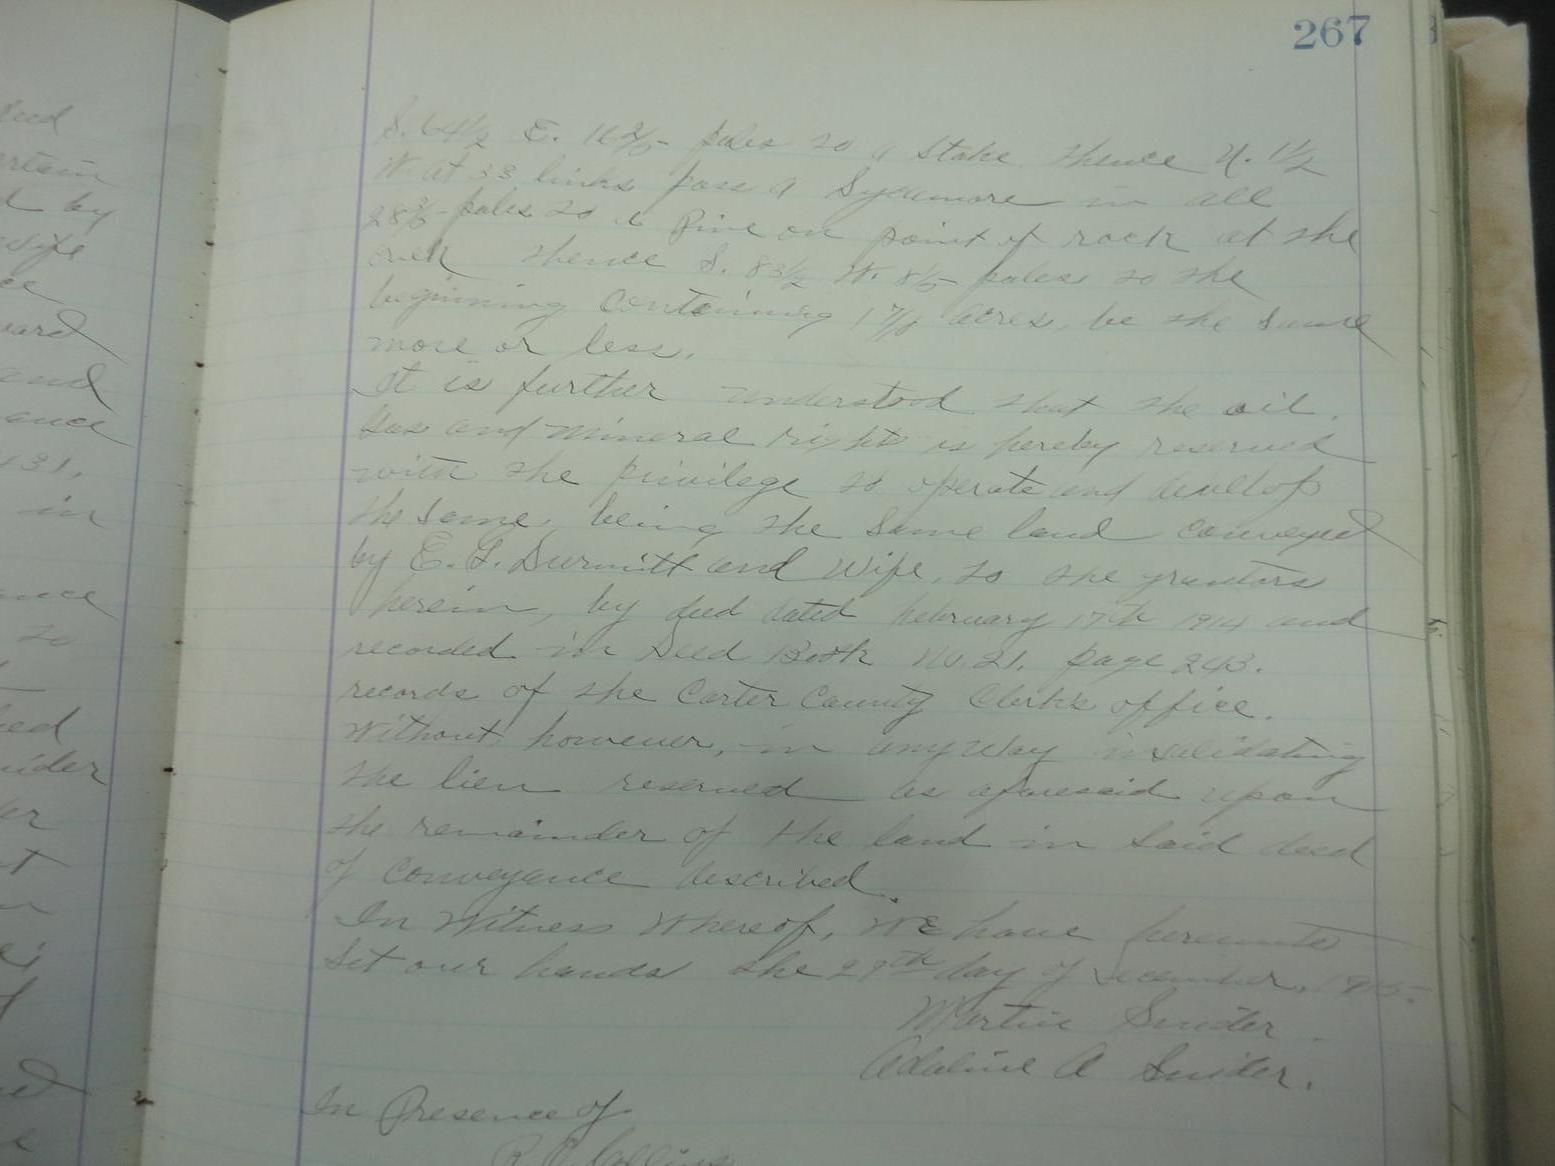 267
S. 64½ E. 16 poles to a Stake thence N. 1½
W. at 33 links pass a Sycamore in all
28 poles to a Pine on point of rock at the
creek thence S. 83½ W. 8 poles to the
beginning containing 17 acres, be the same
more or less.
It is further understood that the oil,
Gas and Mineral right is hereby reserved
with the privilege to operate and develop
the same, being the same land conveyed
by E. and wife, to the grantors
herein, by deed dated february 17th 1914 and
recorded in Deed Book No. 21, page 243.
records of the Carter County Clerk's office.
Without, however, in any way invalidating
the lien reserved as aforesaid upon
the remainder of the land in said deed
of conveyance described.
In Witness Whereof, We have hereunto
Set our hands the 29th day of December, 1915.
Martin Snider
Adaline A Snider.
In Presence of
Collins